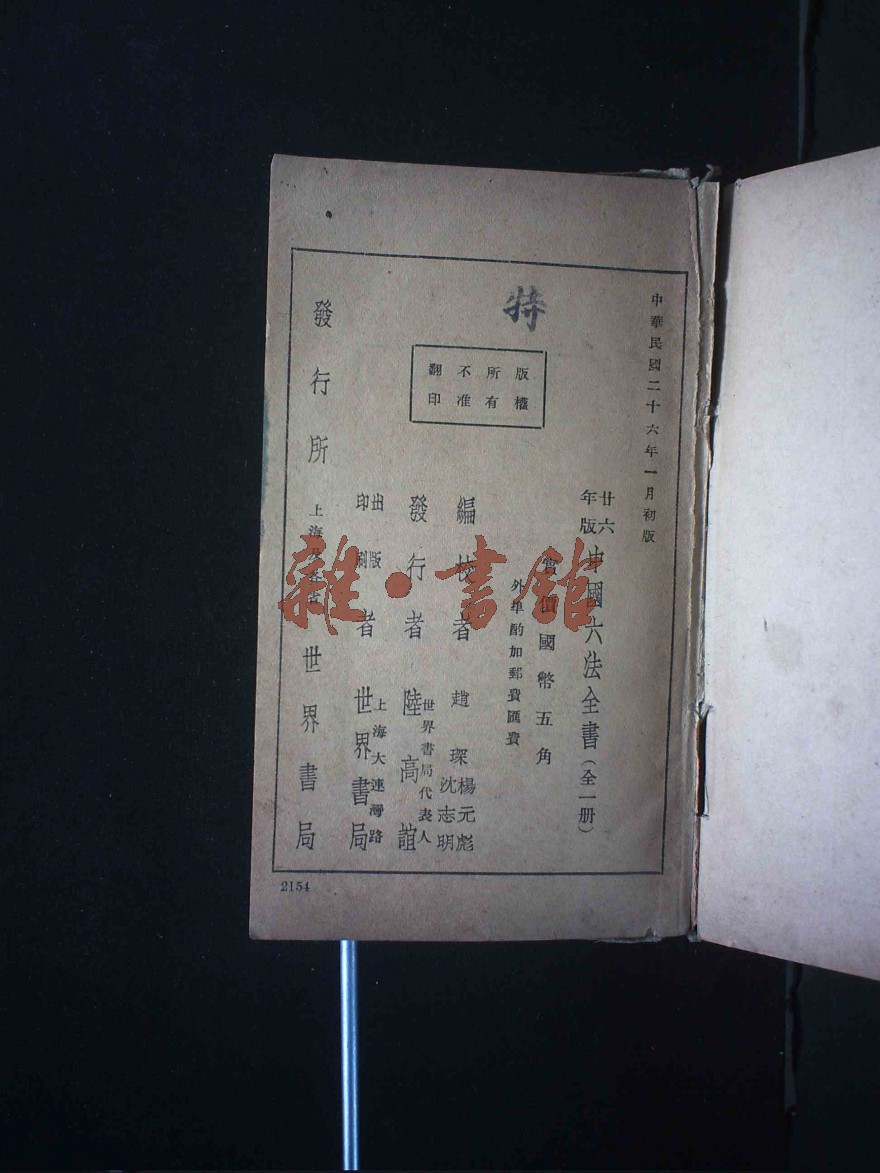 中華民國二十六年一月初版
廿六年版 中國六法全書(全一册)
實價國幣五角
外埠酌加郵費匯費
特
版權所有
不准翻印
編校者 趙琛 楊元彪 沈志明
發行者 世界書局代表人 陸高誼
出版印刷者 上海大連灣路 世界書局
發行所 上海及各省 世界書局
2154
雜·書館